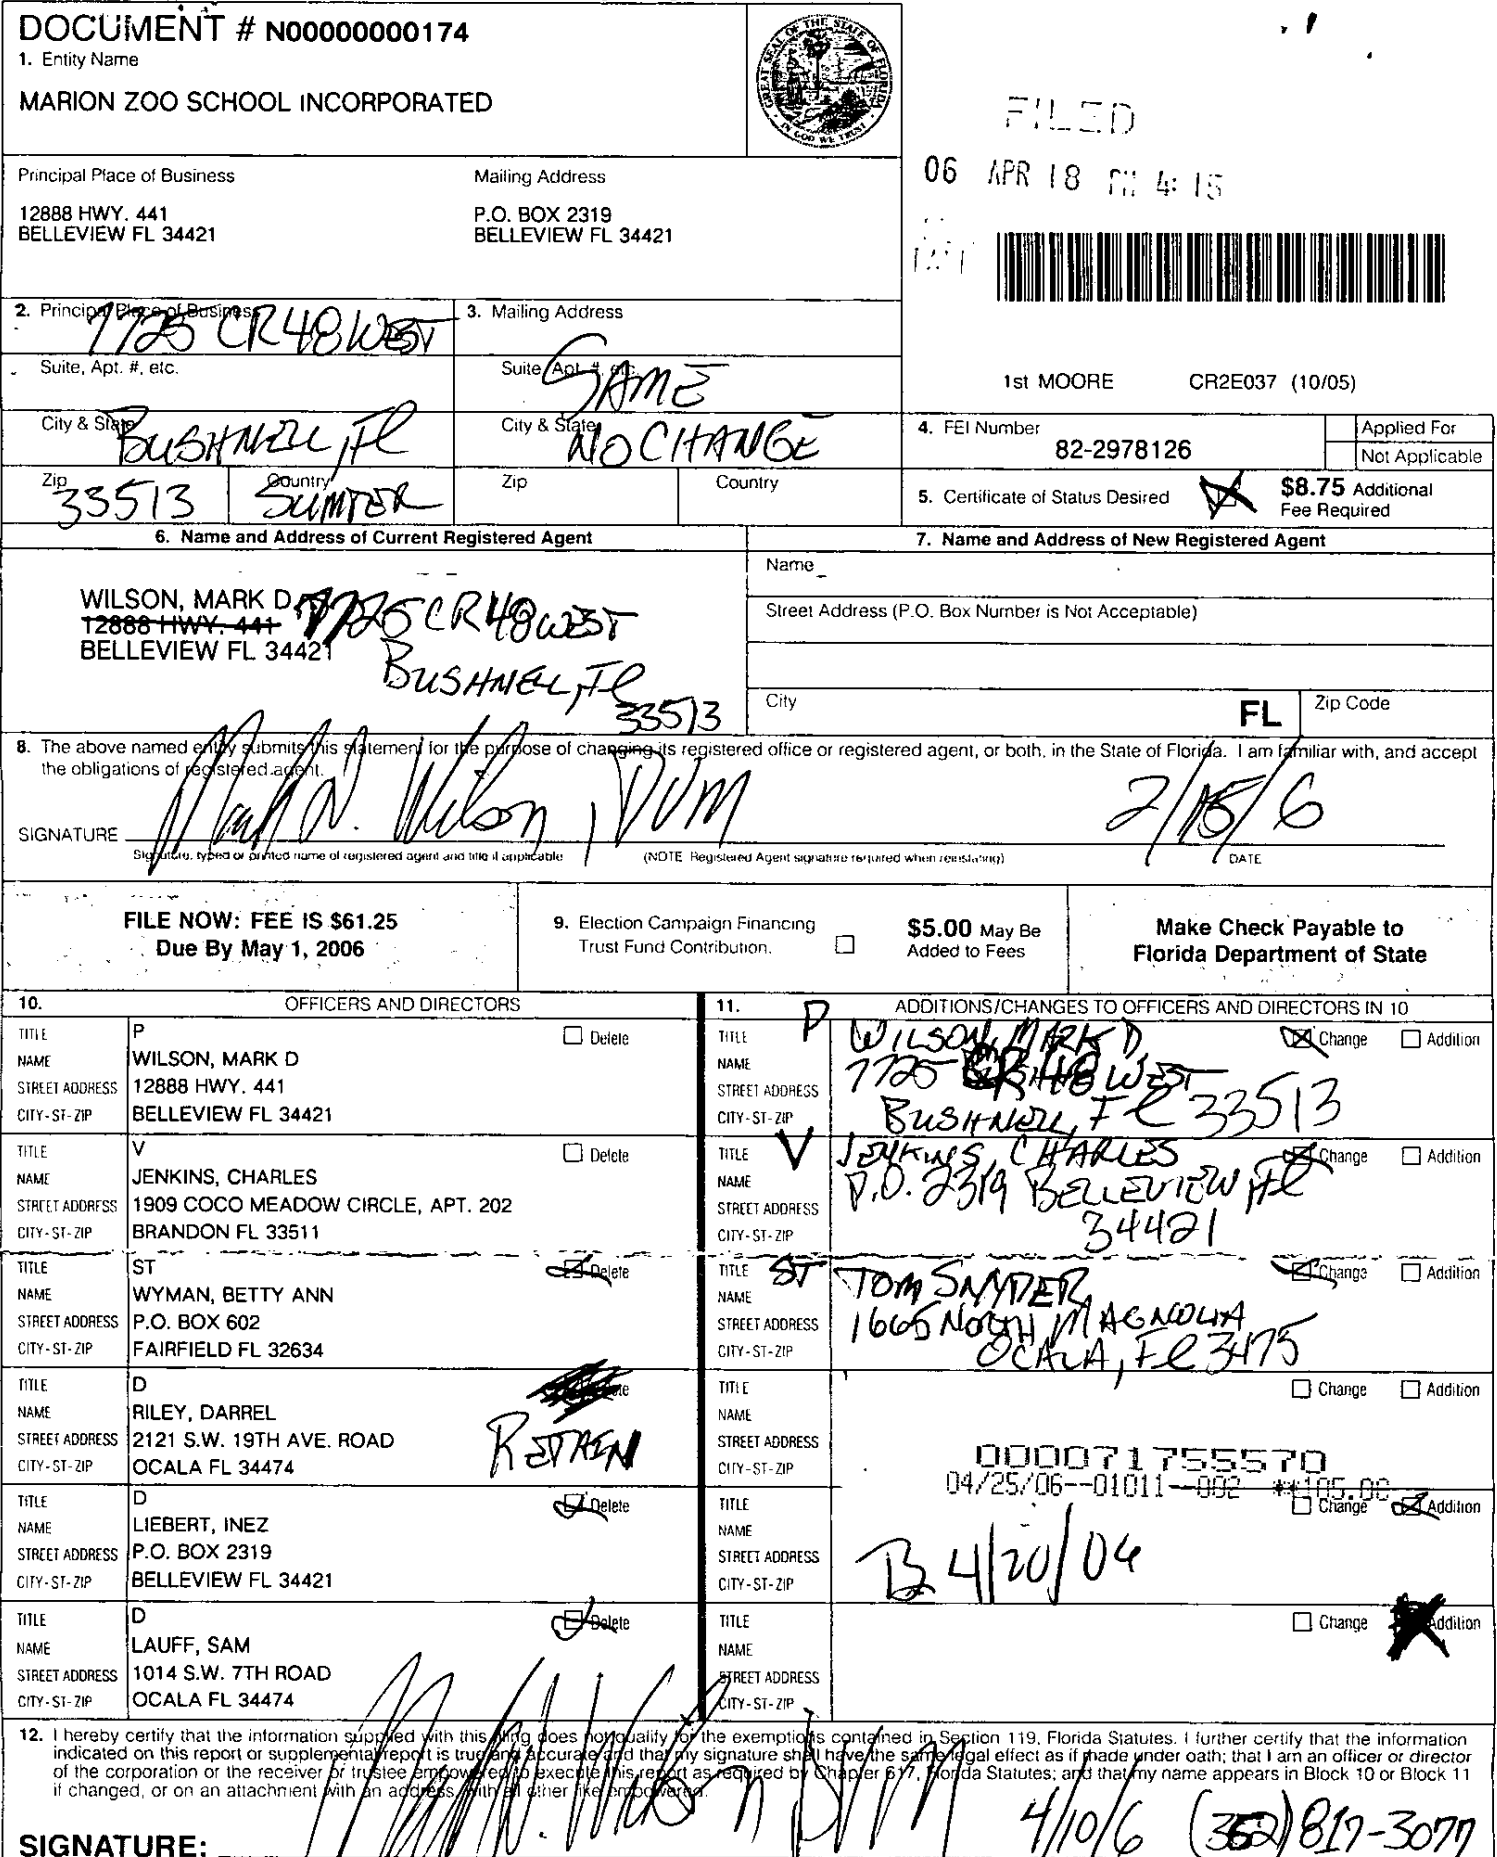 DOCUMENT # N00000000174
1. Entity Name
MARION ZOO SCHOOL INCORPORATED
GREAT SEAL OF THE STATE OF FLORIDA
IN GOD WE TRUST
FILED
06 APR 18 PM 4:15
Principal Place of Business
12888 HWY. 441
BELLEVIEW FL 34421
Mailing Address
P.O. BOX 2319
BELLEVIEW FL 34421
2. Principal Place of Business
7725 CR 48 WEST
3. Mailing Address
Suite, Apt. #, etc.
Suite, Apt. #, etc.
SAME
1st MOORE CR2E037 (10/05)
City & State
BUSHNELL, Fl
City & State
NO CHANGE
4. FEI Number
82-2978126
Applied For
Not Applicable
Zip
33513
Country
SUMTER
Zip
Country
5. Certificate of Status Desired
$8.75 Additional
Fee Required
6. Name and Address of Current Registered Agent
WILSON, MARK D
12888 HWY. 441 7725 CR 48 WEST
BELLEVIEW FL 34421
BUSHNELL, Fl
33513
7. Name and Address of New Registered Agent
Name
Street Address (P.O. Box Number is Not Acceptable)
City
FL
Zip Code
8. The above named entity submits this statement for the purpose of changing its registered office or registered agent, or both, in the State of Florida. I am familiar with, and accept
the obligations of registered agent.
SIGNATURE Mark D. Wilson, DVM 2/15/6
Signature, typed or printed name of registered agent and title if applicable (NOTE Registered Agent signature required when reinstating) DATE
FILE NOW: FEE IS $61.25
Due By May 1, 2006
9. Election Campaign Financing
Trust Fund Contribution.
$5.00 May Be
Added to Fees
Make Check Payable to
Florida Department of State
10. OFFICERS AND DIRECTORS
TITLE P Delete
NAME WILSON, MARK D
STREET ADDRESS 12888 HWY. 441
CITY-ST-ZIP BELLEVIEW FL 34421
TITLE V Delete
NAME JENKINS, CHARLES
STREET ADDRESS 1909 COCO MEADOW CIRCLE, APT. 202
CITY-ST-ZIP BRANDON FL 33511
TITLE ST Delete
NAME WYMAN, BETTY ANN
STREET ADDRESS P.O. BOX 602
CITY-ST-ZIP FAIRFIELD FL 32634
TITLE D
NAME RILEY, DARREL
STREET ADDRESS 2121 S.W. 19TH AVE. ROAD
CITY-ST-ZIP OCALA FL 34474
RETAIN
TITLE D Delete
NAME LIEBERT, INEZ
STREET ADDRESS P.O. BOX 2319
CITY-ST-ZIP BELLEVIEW FL 34421
TITLE D Delete
NAME LAUFF, SAM
STREET ADDRESS 1014 S.W. 7TH ROAD
CITY-ST-ZIP OCALA FL 34474
11. ADDITIONS/CHANGES TO OFFICERS AND DIRECTORS IN 10
TITLE P WILSON, MARK D Change Addition
NAME 7725 CR 48 WEST
STREET ADDRESS
CITY-ST-ZIP BUSHNELL, Fl 33513
TITLE V JENKINS, CHARLES Change Addition
NAME P.O. 2319 BELLEVIEW, Fl
STREET ADDRESS 34421
CITY-ST-ZIP
TITLE ST TOM SNYDER Change Addition
NAME
STREET ADDRESS 1665 NORTH MAGNOLIA
CITY-ST-ZIP OCALA, Fl 3475
TITLE Change Addition
NAME
STREET ADDRESS
CITY-ST-ZIP
000071755570
04/25/06--01011--002 **105.00
TITLE Change Addition
NAME
STREET ADDRESS
CITY-ST-ZIP
B 4/20/06
TITLE Change Addition
NAME
STREET ADDRESS
CITY-ST-ZIP
12. I hereby certify that the information supplied with this filing does not qualify for the exemptions contained in Section 119, Florida Statutes. I further certify that the information
indicated on this report or supplemental report is true and accurate and that my signature shall have the same legal effect as if made under oath; that I am an officer or director
of the corporation or the receiver or trustee empowered to execute this report as required by Chapter 617, Florida Statutes; and that my name appears in Block 10 or Block 11
if changed, or on an attachment with an address, with all other like empowered.
SIGNATURE: Mark D. Wilson DVM 4/10/6 (352) 817-3077